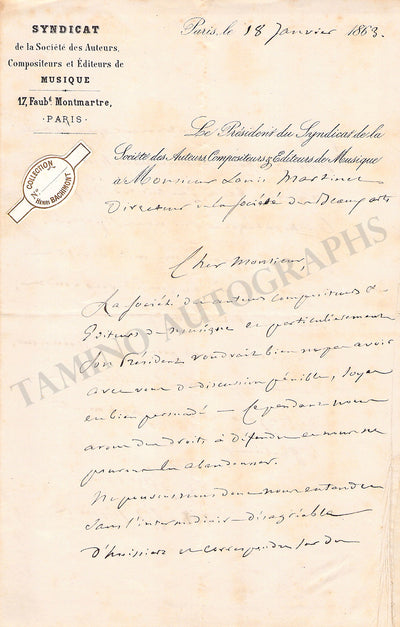 SYNDICAT
de la Société des Auteurs,
Compositeurs et Éditeurs de
MUSIQUE
17, Faubg. Montmartre,
PARIS
Paris, le 18 Janvier 1863.
Le Président du Syndicat de la
Société des Auteurs, Compositeurs & Editeurs de Musique
à Monsieur Louis Martinet
Directeur de la Société des Beaux arts
COLLECTION
No
Henri BACHIMONT
Cher Monsieur,
La Société des auteurs compositeurs &
Editeurs de musique et particulièrement
son Président voudrait bien ne pas avoir
avec vous de discussion pénible, soyez
en bien persuadé — Cependant nous
avons des droits à défendre et nous ne
pouvons les abandonner.
Ne pouvons nous donc nous entendre
sans l'intermédiaire désagréable
d'huissiers et correspondre sur du
TAMINO AUTOGRAPHS